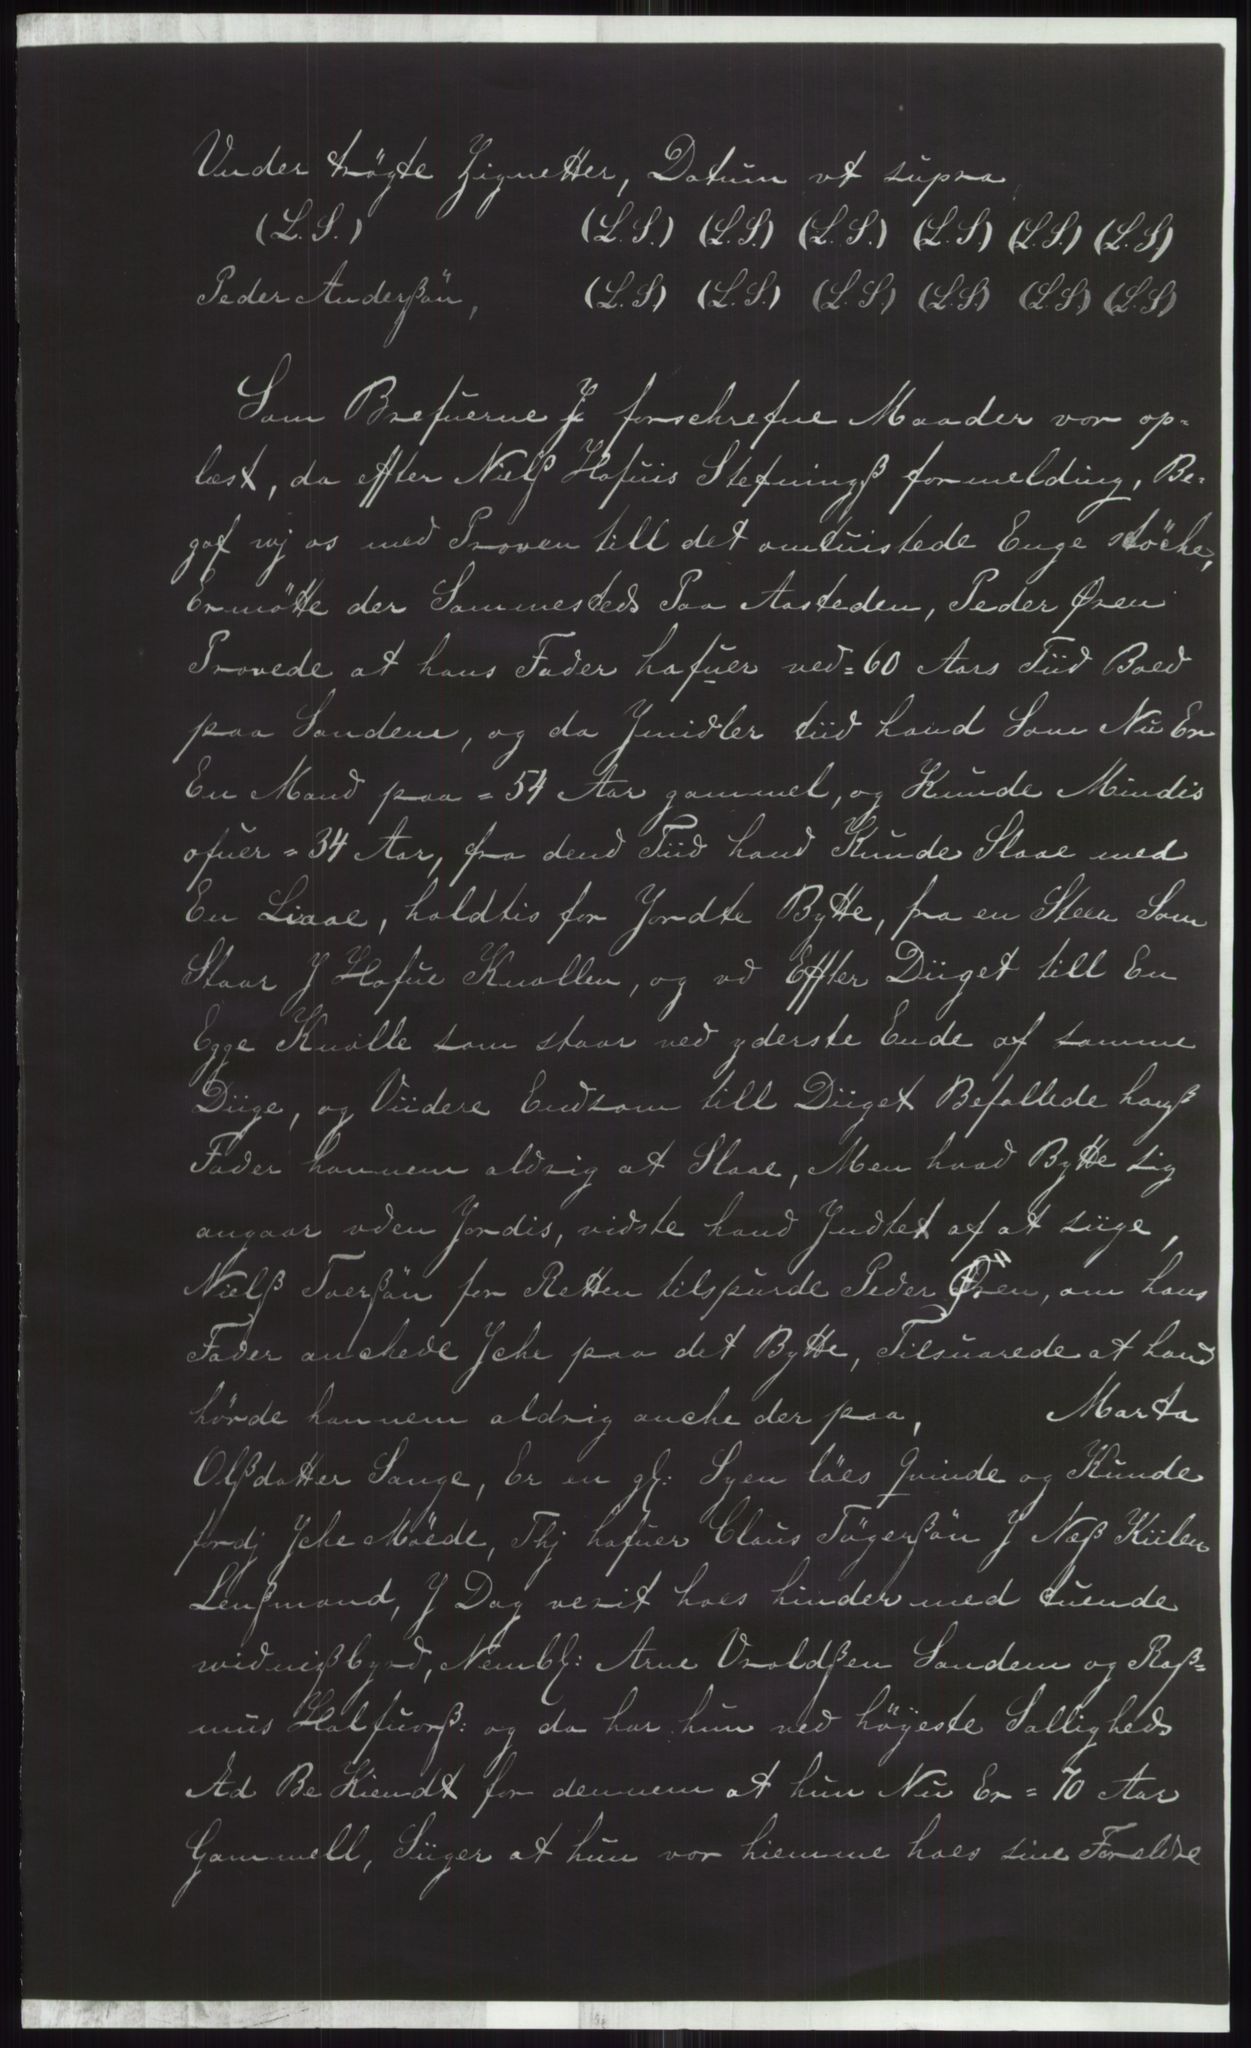 Vnder trögte Zignetter, Datum vt supra
(L.S.) (L.S.) (L.S.) (L.S.) (L.S.) (L.S.) (L.S.)
Peder Anderßön, (L.S) (L.S.) (L.S.) (L.S) (L.S) (L.S)
Som Brefuerne J forschrefne Maader vor op=
læst, da effter Nielß Hafuis Stefningß formelding, Be=
gaf wj os med Proven till det omtuistede Enge stöche,
Er mötte der Sammesteds Paa Aasteden, Peder Øren
Provede at hans Fader hafuer ved = 60 Aars Tiid Boed
paa Sandem, og da Jmidler tiid hand Som Nu Er
En Mand paa = 54 Aar gammel, og Kunde Mindis
ofuer = 34 Aar, fra dend Tiid hand Kunde Slaae med
En Liaae, holdtis for Jordte Bytte, fra en Steen Som
Staar J Hafue Knollen, og vd Effter Diiget till En
Egge Knolle som staar ved yderste Ende af samme
Diige, og Viidere Endsom till Diiget Befallede hanß
Fader hannem aldrig at Slaae, Men hvad Bytte sig
angaar vden Jordis, vidste hand Jndtet af at siige,
Nielß Toerßön for Retten tilspurde Peder Øren, om hans
Fader anchede Jche paa det Bytte, Tilsuarede at hand
hörde hannem aldrig anche der paa, Marta
Olßdatter Sange, Er en gl: Syen löes qvinde og Kunde
fordj Jche Möede, Thj hafuer Claus Tögerßön J Næß Kiilen
Lenßmand, J Dag verit hoes hinder med tuende
widnißbyrd, Nembl: Arne Vroldßen Sandem og Raß=
mus Halfuorß: og da har hun ved höyeste Salligheds
Ed Be Kiendt for dennem at hun Nu Er = 70 Aar
Gammell, Siiger at hun vor hiemme hoes sine Foreldre